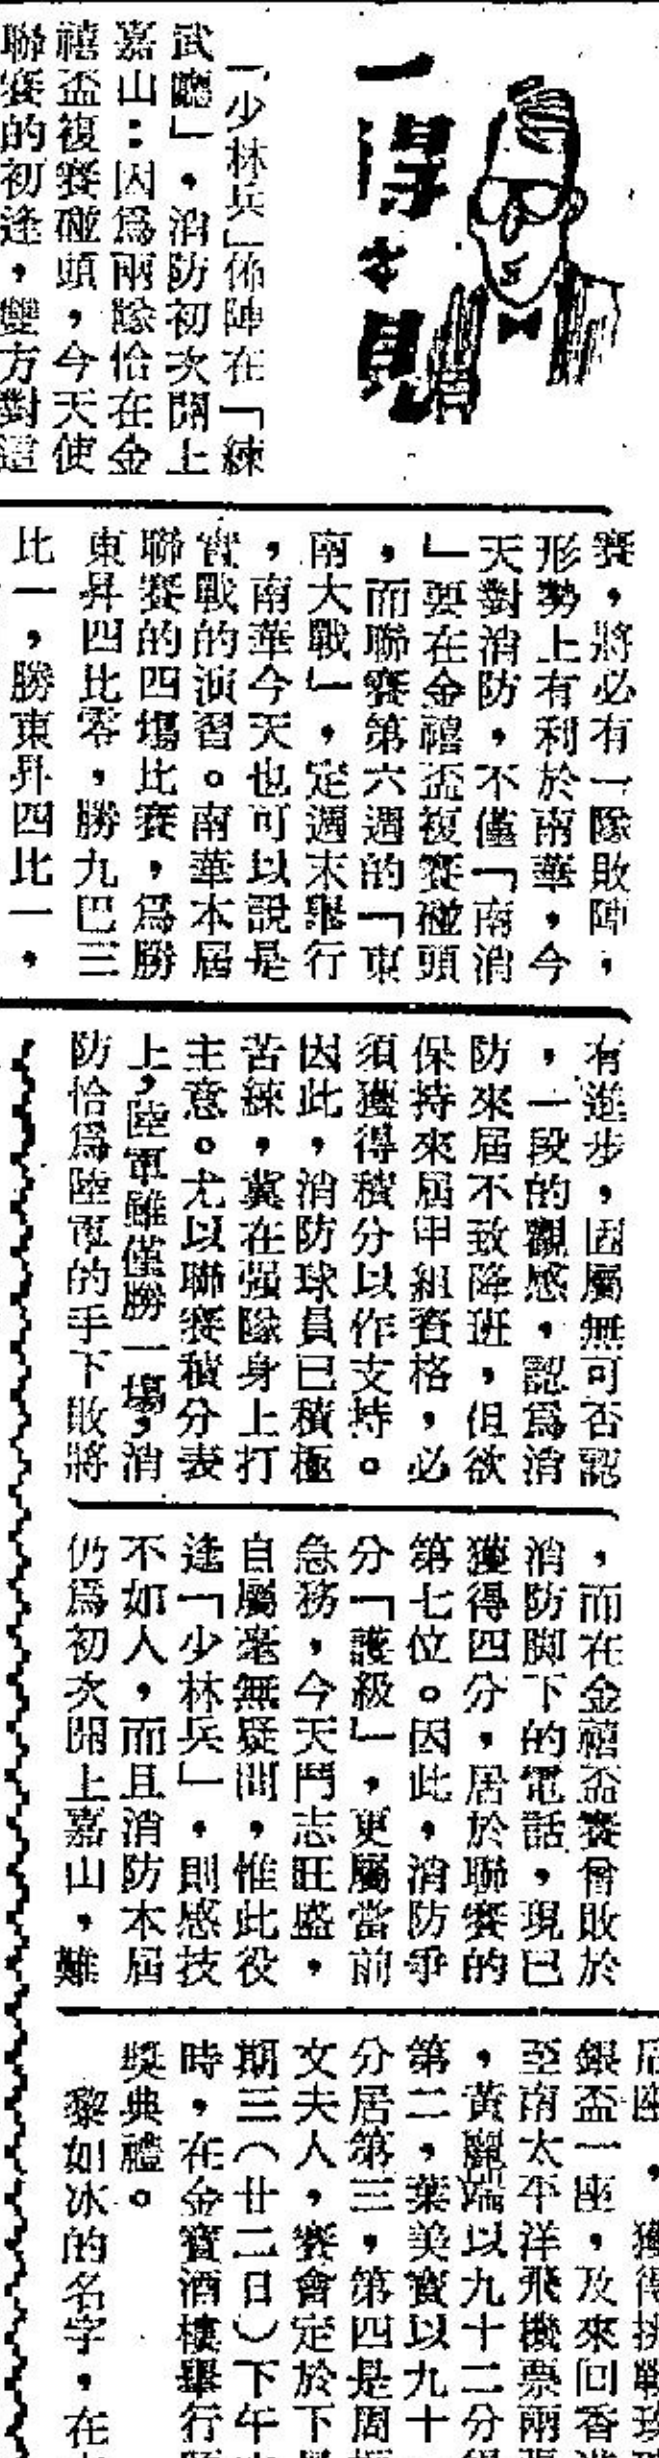 一得之見
「少林兵」佈陣在「練
武廳」,消防初次開上
嘉山:因爲兩隊恰在金
禧盃複賽碰頭,今天使
聯賽的初逢,雙方對這
賽,將必有一隊敗陣,
形勢上有利於南華,今
天對消防,不僅「南消
」要在金禧盃複賽碰頭
,而聯賽第六週的「東
南大戰」,定週末舉行
,南華今天也可以說是
實戰的演習。南華本屆
聯賽的四場比賽,爲勝
東昇四比零,勝九巴三
比一,勝東昇四比一,
有進步,固屬無可否認
,一段的觀感,認爲消
防來屆不致降班,但欲
保持來屆甲組資格,必
須獲得積分以作支持。
因此,消防球員已積極
苦練,冀在强隊身上打
主意。尤以聯賽積分表
上,陸軍雖僅勝一場,消
防恰爲陸軍的手下敗將
,而在金禧盃賽曾敗於
消防脚下的電話,現已
獲得四分,居於聯賽的
第七位。因此,消防爭
分「護級」,更屬當前
急務,今天鬥志旺盛,
自屬毫無疑問,惟此役
逢「少林兵」,則感技
不如人,而且消防本屆
仍爲初次開上嘉山,難
,獲得挑戰
銀盃一座,及來回香港
至南太平洋飛機票兩
,黃麗端以九十二分
第二,葉美寶以九十
分居第三,第四是周
文夫人,賽會定於下
期三(廿二日)下午
時,在金寶酒樓舉行
獎典禮。
黎如冰的名字,在